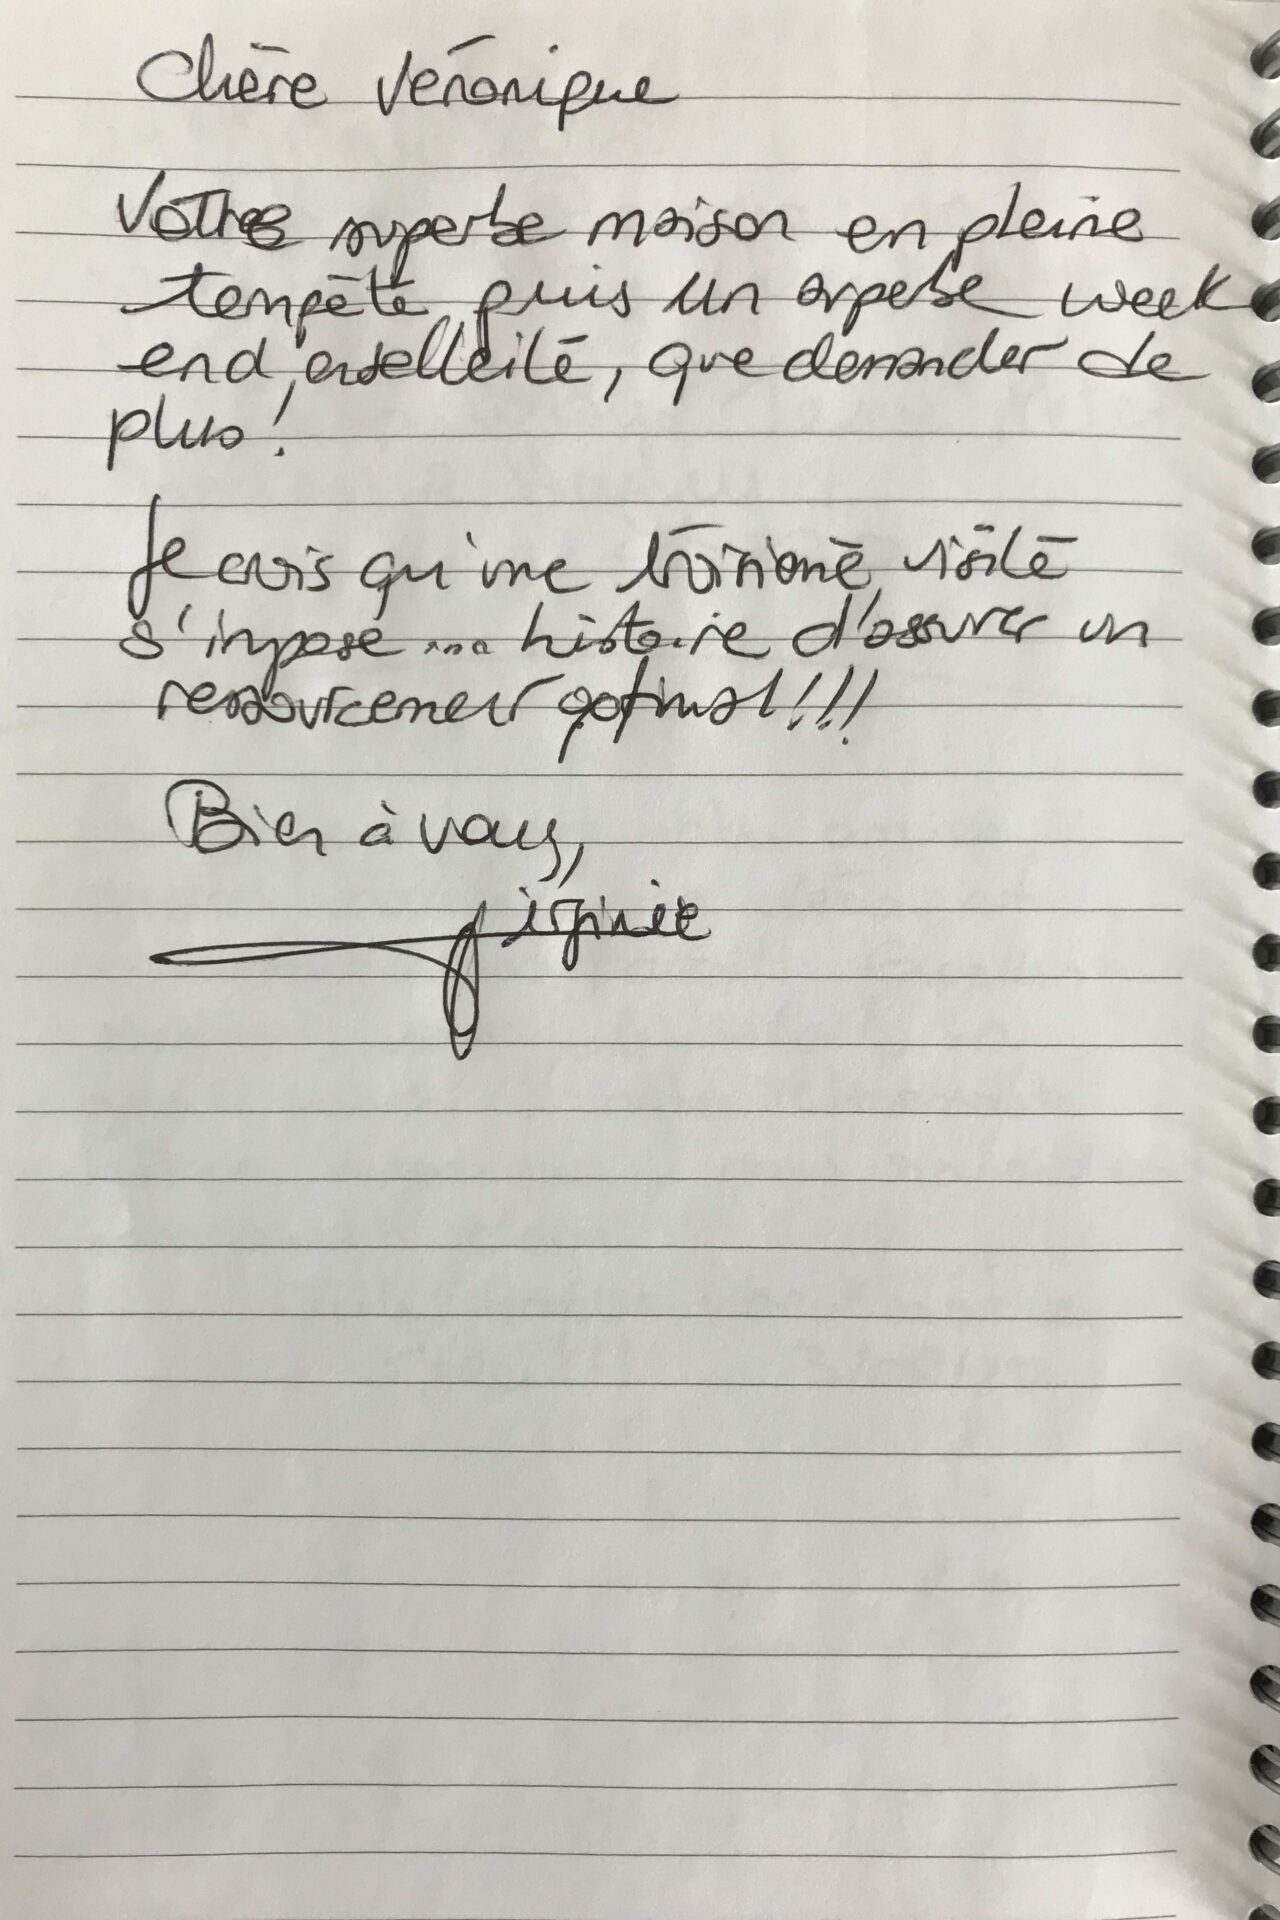 Chère Véronique
Votre superbe maison en pleine
tempête puis un superbe week
end ensoleillé, que demander de
plus !
Je crois qu'une troisième visite
s'impose ... histoire d'assurer un
ressourcement optimal !!!
Bien à vous,
Virginie